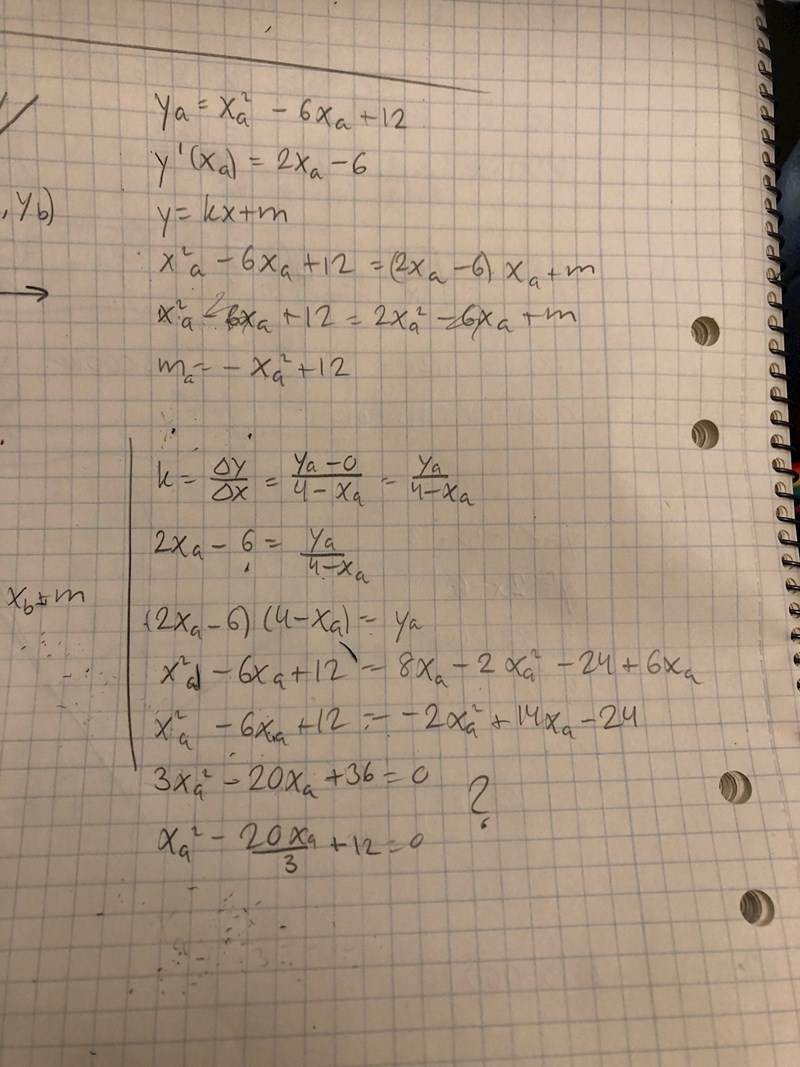 yₐ = xₐ² - 6xₐ + 12
y'(xₐ) = 2xₐ - 6
, y_b)
y = kx+m
x²ₐ - 6xₐ + 12 = (2xₐ - 6) xₐ + m
x²ₐ - 6xₐ + 12 = 2xₐ² - 6xₐ + m
mₐ = - xₐ² + 12
k = Δy/Δx = (yₐ - 0)/(4 - xₐ) = yₐ/(4-xₐ)
2xₐ - 6 = yₐ/(4-xₐ)
x_b + m
(2xₐ - 6) (4 - xₐ) = yₐ
x²ₐ - 6xₐ + 12 = 8xₐ - 2xₐ² - 24 + 6xₐ
x²ₐ - 6xₐ + 12 = -2xₐ² + 14xₐ - 24
3xₐ² - 20xₐ + 36 = 0 ?
xₐ² - 20xₐ/3 + 12 = 0